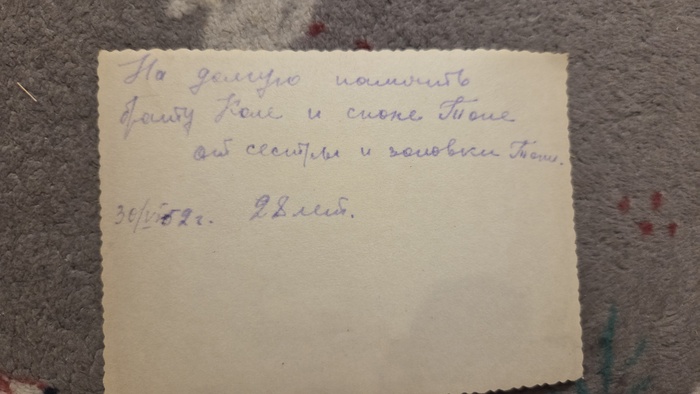 На долгую память
брату Коле и снохе Тоне
от сестры и золовки Тони.
30/VI 52 г. 28 лет.